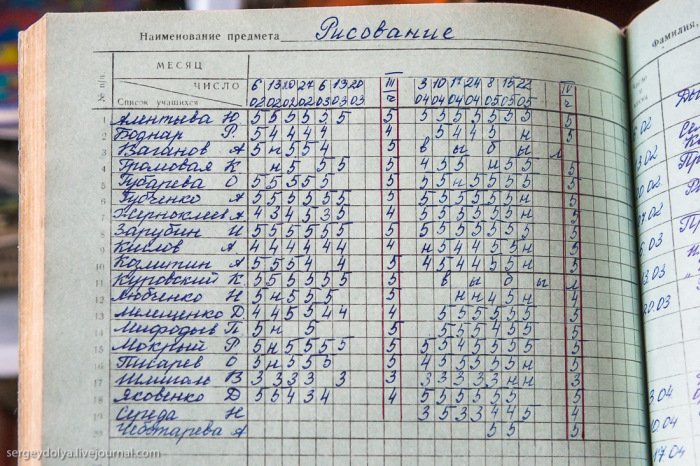 Наименование предмета Рисование
Фамилия,
МЕСЯЦ
ЧИСЛО
№ п/п.
Список учащихся
6 13 20 27 6 13 20 III 3 10 17 24 8 15 22 IV
02 02 02 02 03 03 03 ч 04 04 04 04 05 05 05 ч
1 Алентьева Ю 5 5 5 5 5 5 5 5 5 5 5 5 5 5 5
2 Боднар Р. 5 4 4 4 4 4 5 4 4 5 н 5
3 Ваганов А 5 н 5 5 4 4 в ы б ы л
4 Громовая К н 5 5 5 5 4 5 5 н 5 5 5
5 Губарева О 5 5 5 5 5 5 5 5 н 5 5 5 5 5
6 Губченко А 5 5 5 5 5 5 5 5 5 5 5 5 5 н 5
7 А 4 3 4 5 3 5 4 5 5 5 5 5 5 н 5
8 Зарубин И 5 5 5 5 5 5 5 5 5 5 5 5 5 н 5
9 Кислов А 4 4 4 4 4 4 4 н 5 4 4 5 5 н 5
10 А 5 5 5 4 4 5 4 5 4 5 5 н н 5
11 Куровский К 5 5 5 5 5 5 5 в ы б ы л
12 Любченко Н 5 н 5 5 5 5 н н 4 5 н 4
13 Д 4 4 5 5 4 4 4 5 5 5 5 5 5 5
14 Мифодьев П 5 н 5 5 5 5 5 4 5 5 5
15 Мокрый Р 5 н 5 5 5 5 5 5 5 5 5 5 5 н 5
16 Писарев О 5 н 5 5 5 5 4 5 5 5 5 5 н 5
17 В 3 3 3 3 3 3 3 3 3 3 3 н н 3
18 Яковенко Д 5 5 4 3 4 4 5 5 5 5 5 5 5
19 Н 3 5 3 3 4 4 5 4
20 Чеботарева А 5 5 5
sergeydolya.livejournal.com